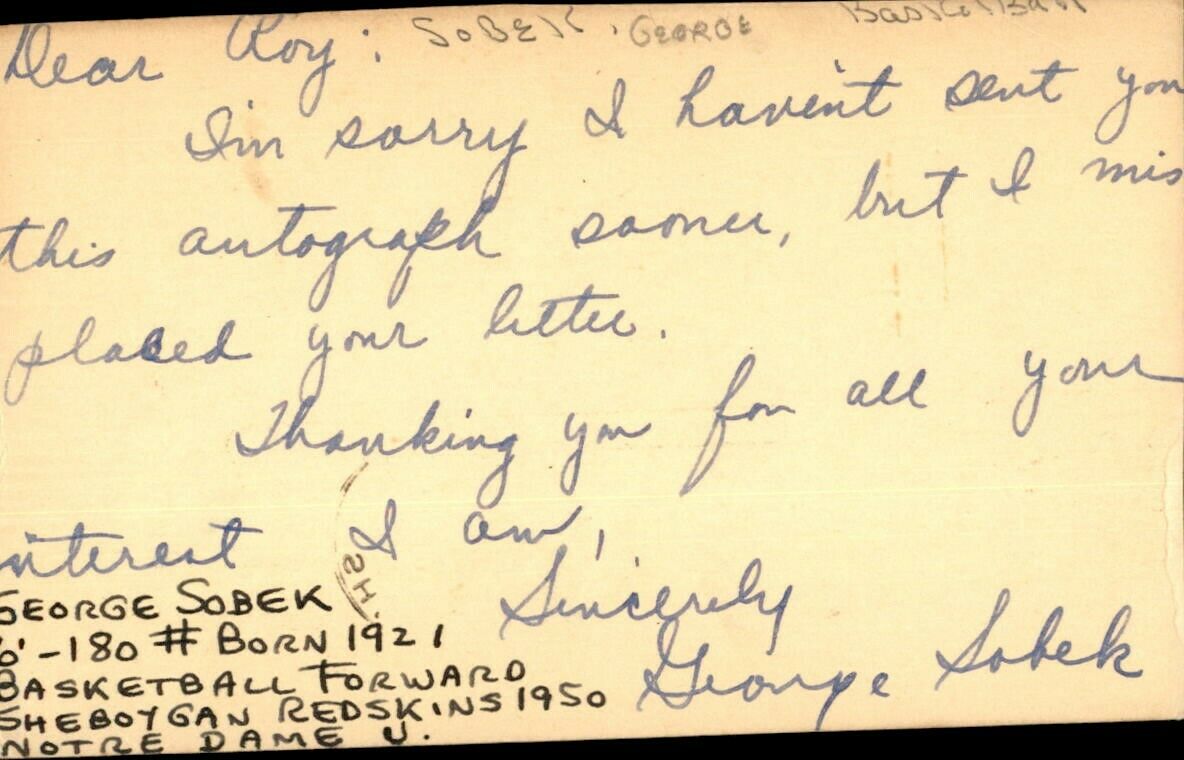 Dear Roy: SOBEK, GEORGE BASKETBALL
I'm sorry I haven't sent you
this autograph sooner, but I mis
placed your letter.
Thanking you for all your
interest I am,
Sincerely
George Sobek
SH.
GEORGE SOBEK
6'-180 # BORN 1921
BASKETBALL FORWARD
SHEBOYGAN REDSKINS 1950
NOTRE DAME U.